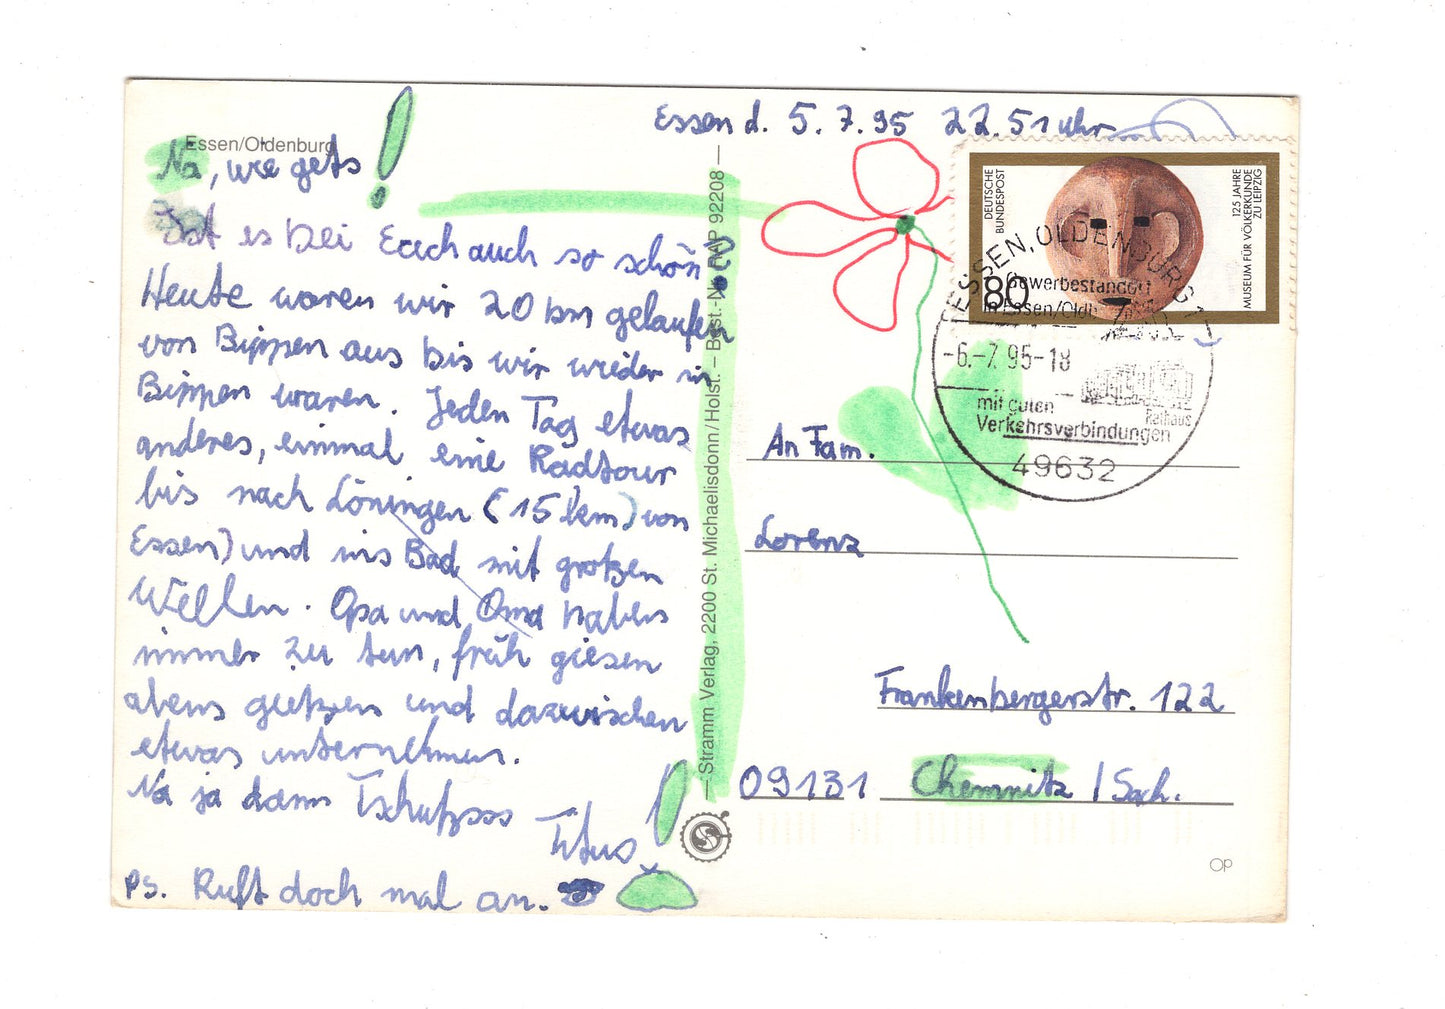 Essen/Oldenburg
Na, wie gets!
Ist es bei Euch auch so schön?
Heute waren wir 20 km gelaufen
von Bippen aus bis wir wieder in
Bippen waren. Jeden Tag etwas
anderes, einmal eine Radtour
bis nach Löningen (15 km) von
Essen) und ins Bad mit großen
Wellen. Opa und Oma haben
immer zu tun, früh giesen
abens
und dazwischen
etwas unternehmen.
Na ja dann Tschüßsss
Titus!
PS. Ruft doch mal an.
Stramm Verlag, 2200 St. Michaelisdonn/Holst. – Best.-Nr. RAP 92208
Essen d. 5.7.95 22.51 Uhr
DEUTSCHE
BUNDESPOST
80
125 JAHRE
MUSEUM FÜR VÖLKERKUNDE
ZU LEIPZIG
ESSEN, OLDENBURG 1
Gewerbestandort
in Essen/Oldb
-6.-7.95-18
mit guten
Verkehrsverbindungen
Rathaus
49632
An Fam.
Lorenz
Frankenbergerstr. 122
09131 Chemnitz / Sach.
OP